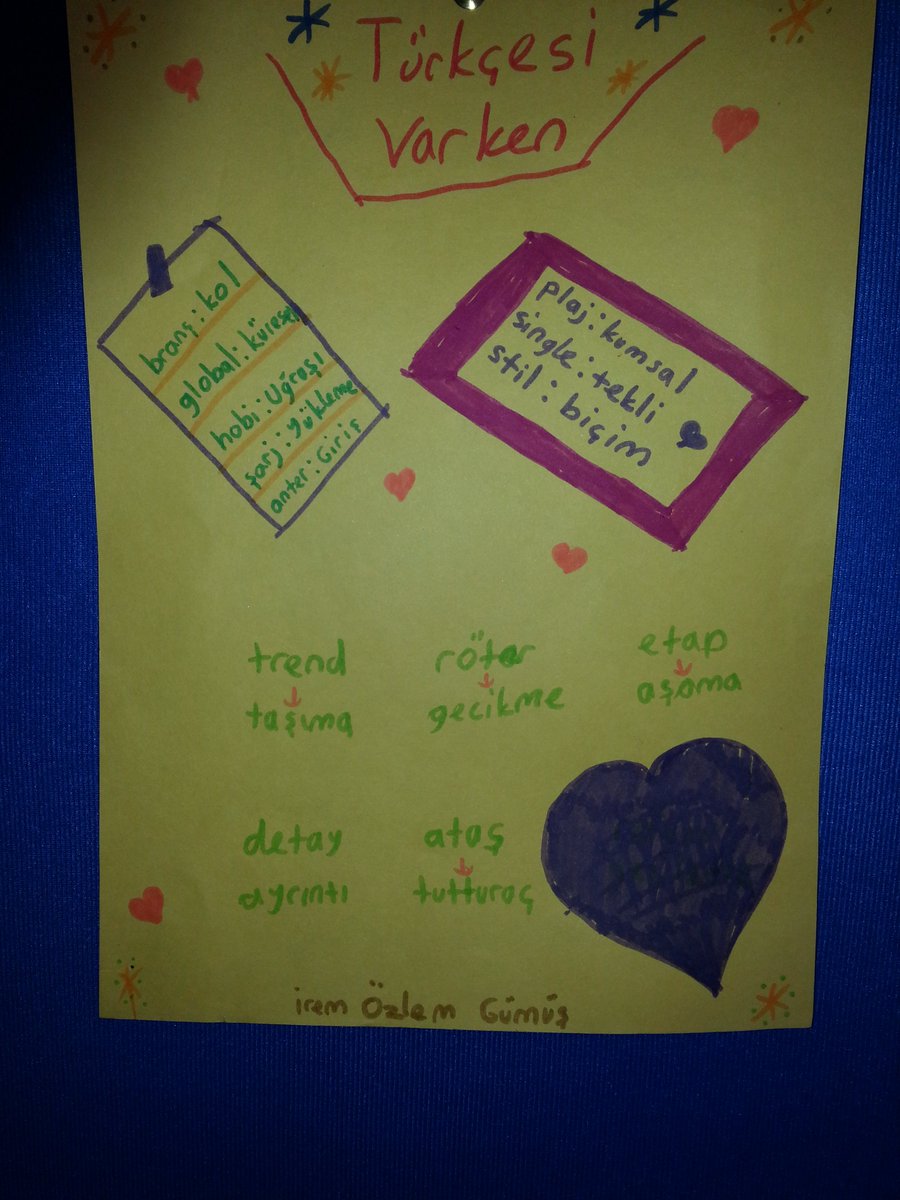 Türkçesi
Varken
branş: kol
global: küresel
hobi: Uğraşı
şarj: yükleme
anter: Giriş
plaj: kumsal
single: tekli
stil: biçim
trend
taşıma
rötar
gecikme
etap
aşama
detay
ayrıntı
ataş
tutturaç
irem Özlem Gümüş